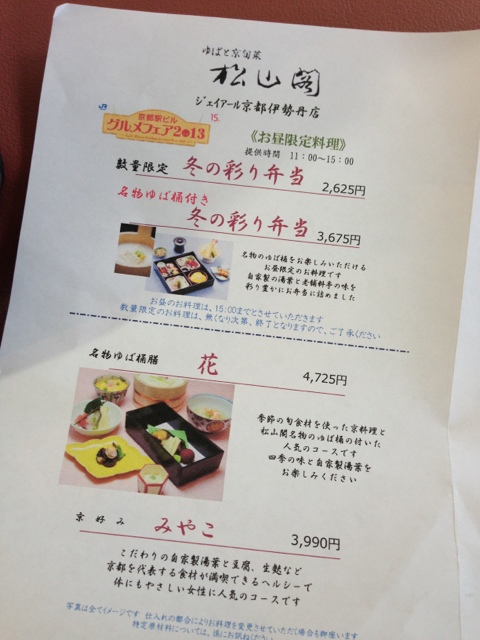 ゆばと京旬菜
松山閣
ジェイアール京都伊勢丹店
JR
京都駅ビル
15.
グルメフェア2013
《お昼限定料理》
提供時間 11:00~15:00
数量限定 冬の彩り弁当 2,625円
名物ゆば桶付き
冬の彩り弁当 3,675円
名物のゆば桶をお楽しみいただける
お昼限定のお料理です
自家製の湯葉と老舗料亭の味を
彩り豊かにお弁当に詰めました
お昼のお料理は、15:00までとさせていただきます
数量限定のお料理は、無くなり次第、終了となりますので、ご了承ください
名物ゆば桶膳 花 4,725円
季節の旬食材を使った京料理と
松山閣名物のゆば桶の付いた
人気のコースです
四季の味と自家製湯葉を
お楽しみください
京好み みやこ 3,990円
こだわりの自家製湯葉と豆腐、生麩など
京都を代表する食材が満喫できるヘルシーで
体にもやさしい女性に人気のコースです
写真は全てイメージです 仕入れの都合によりお料理を変更させていただく場合を御座います
特定原材料については、係にお訊ねください